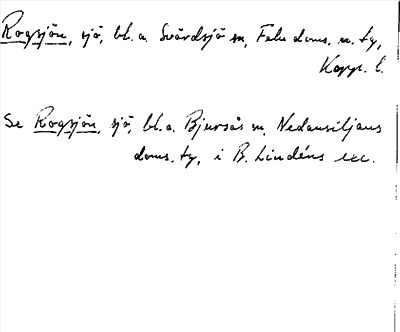 Rogsjön, sjö, bl.a. Svärdsjö sn, Falu doms. n. ty,
Kopp. l.
Se Rogsjön, sjö, bl.a. Bjursås sn, Nedansiljans
doms. ty, i B. Lindéns exc.